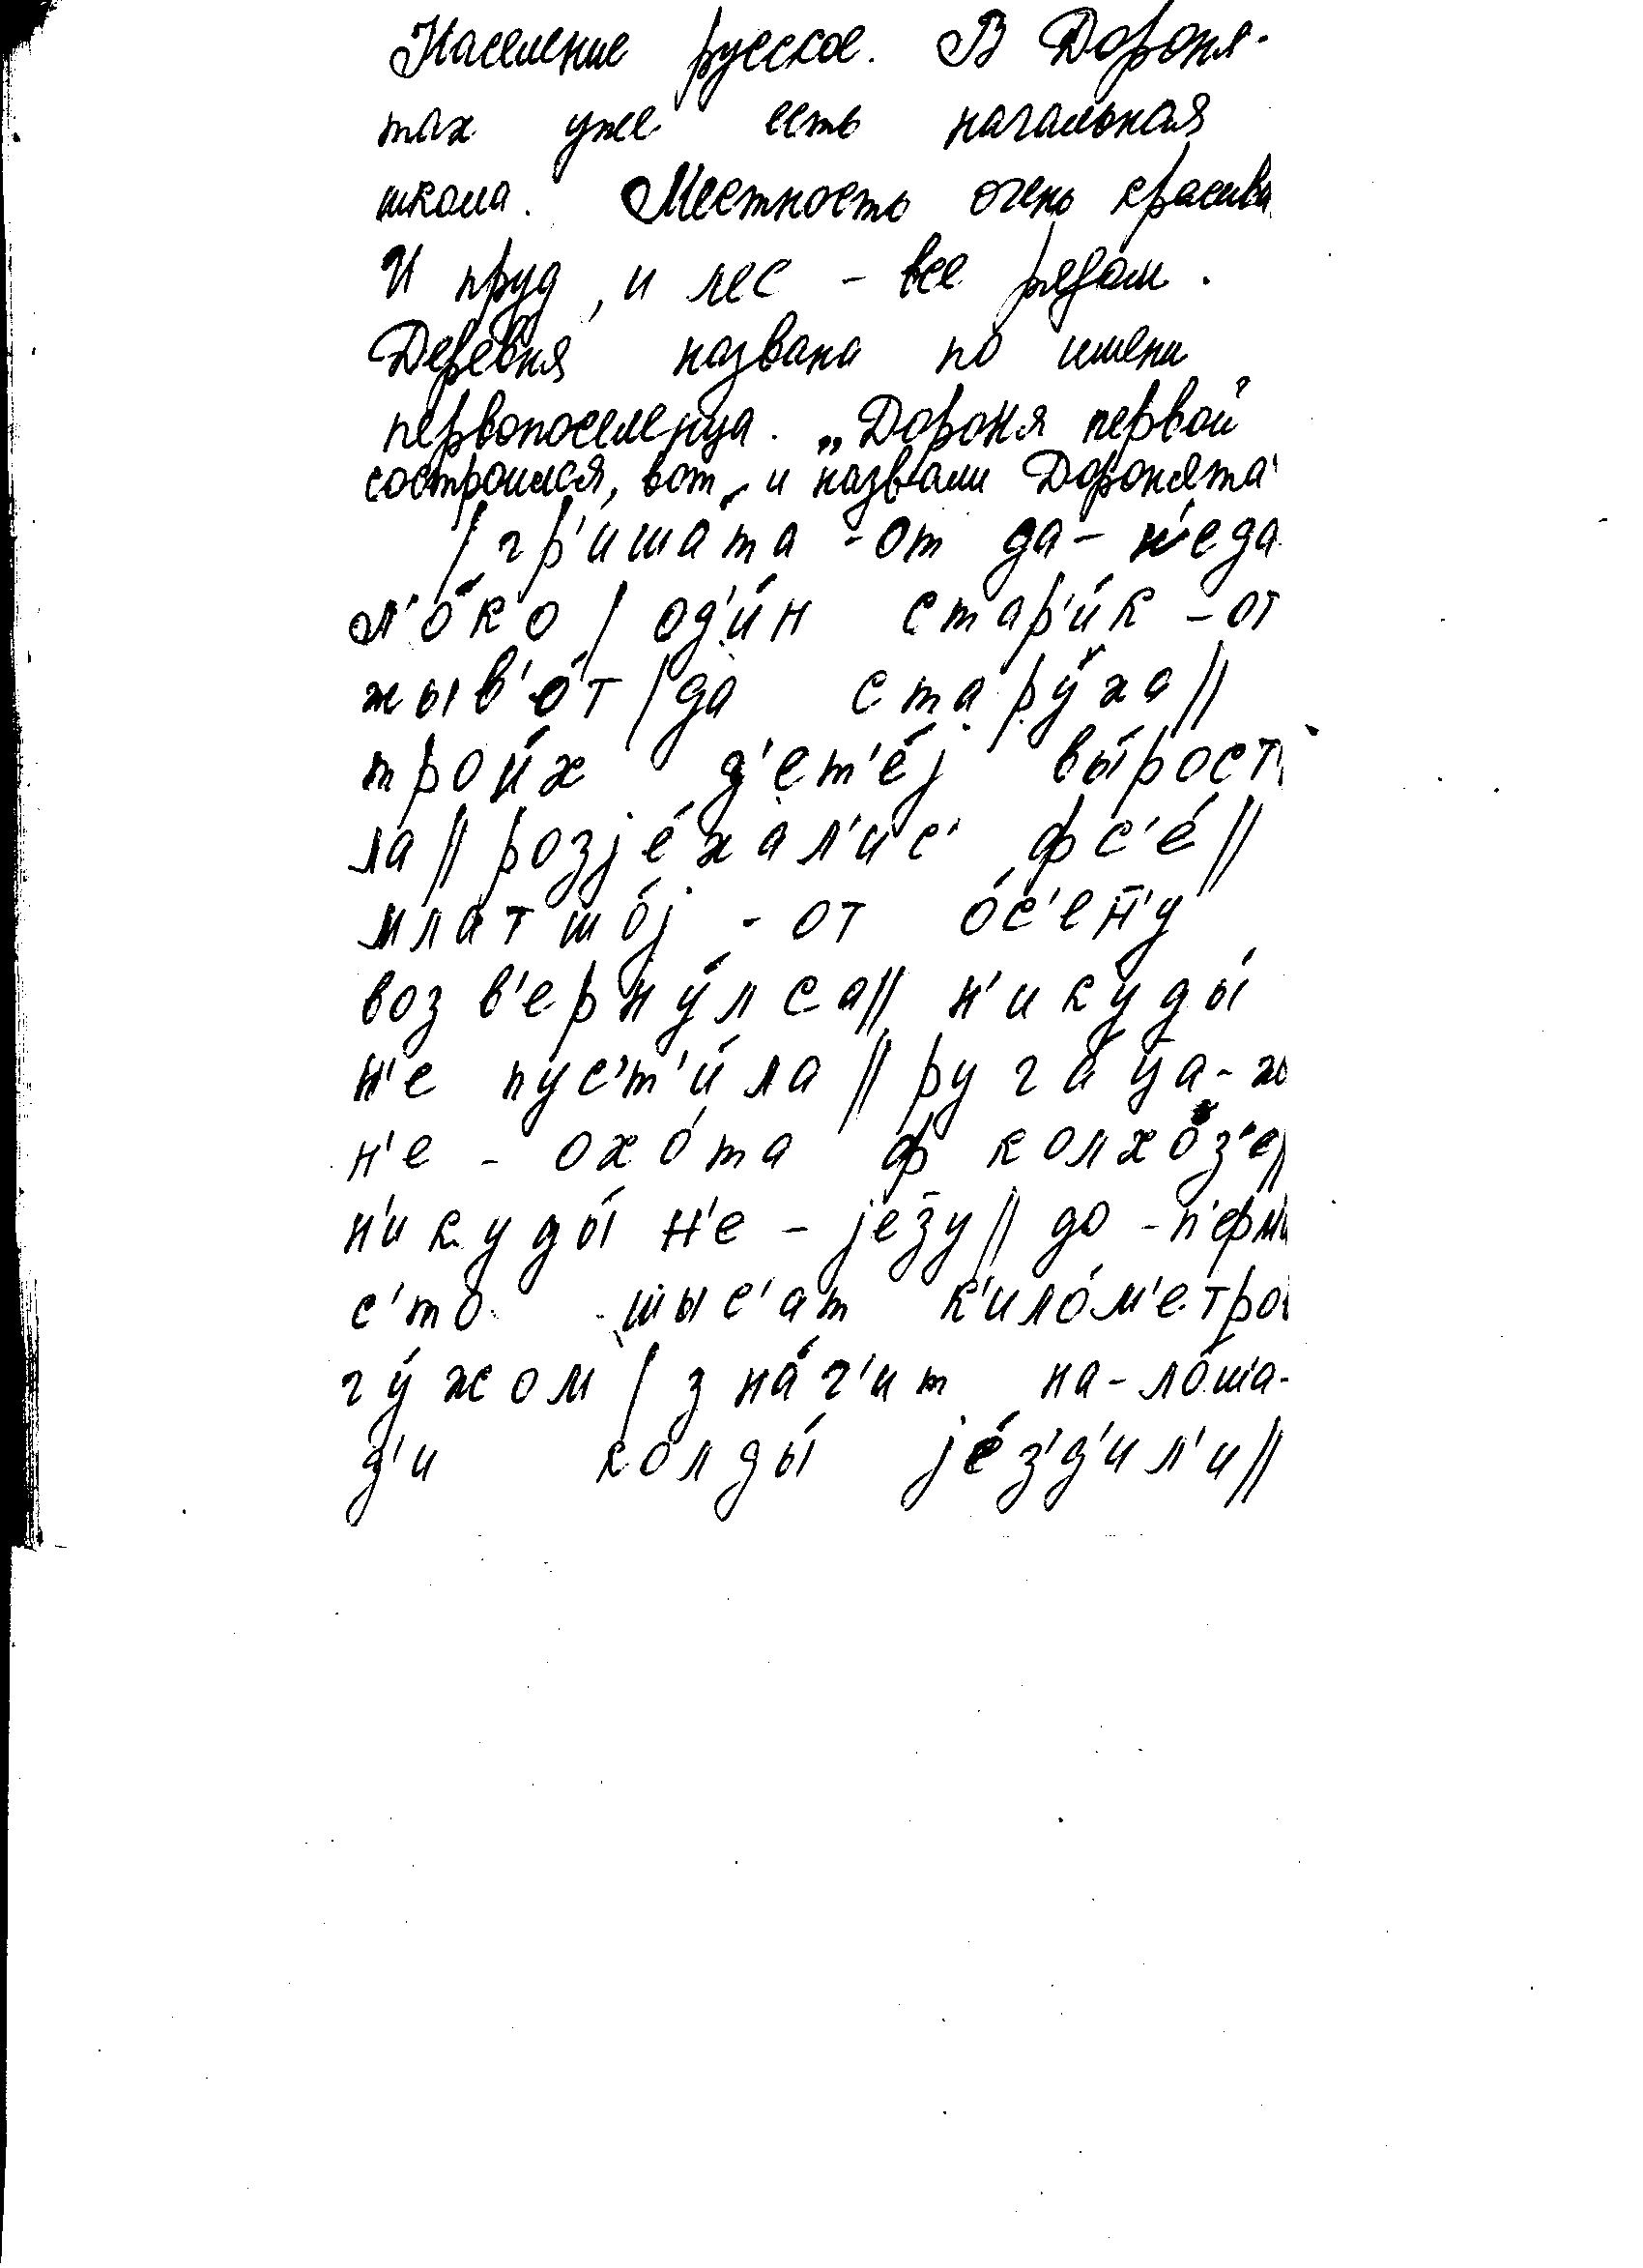 Население русское. В Дороня-
тах уже есть начальная
школа. Местность очень красива
И пруд, и лес – все рядом.
Деревня названа по имени
первопоселенца. „Дороня первой
состроился, вот и назвали Доронята"
/ гр'иша́та -от да- н'еда
л'о́ко / од'и́н стар'и́к -от
жыв'о́т / да стару́ха //
трои́х д'ет'е́j вы́рост'
ла // розjе́хал'ис' фс'е́ //
млатшо́j -от о́с'ен'у
возв'ерну́лса // н'икуды́
н'е пус'т'и́ла // руга́ца-
н'е - охо́та ф колхо́з'е //
н'икуды́ н'е - jезу // до -п'ерм
с'то тыс'ат к'ило́м'етро
гу́жом / зна́ч'ит на-ло́ша-
д'и колды́ jе́з'д'ил'и //